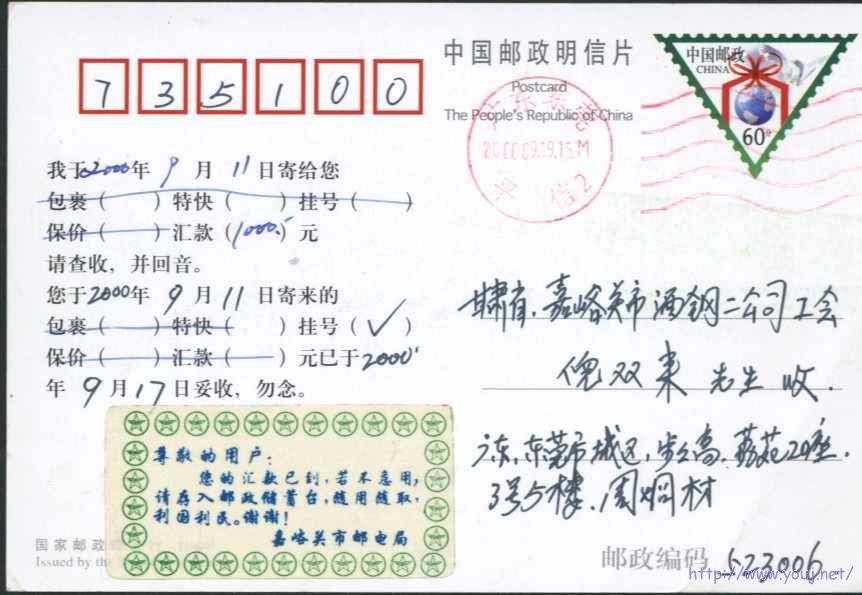 中国邮政明信片
Postcard
The People's Republic of China
中国邮政
CHINA
60分
735100
2000.09.19.15
我于2000年9月11日寄给您
包裹( )特快( )挂号( )
保价( )汇款(1000.)元
请查收，并回音。
您于2000年9月11日寄来的
包裹( )特快( )挂号(✓)
保价( )汇款( )元已于2000
年9月17日妥收，勿念。
甘肃省，嘉峪关市酒钢二公司工会
倪双来 先生 收.
广东，东莞市城区，步步高，荔苑20座
3号5楼，周炯材
尊敬的用户：
您的汇款已到，若不急用，
请存入邮政储蓄台，随用随取，
利国利民。谢谢！
嘉峪关市邮电局
国家邮政
Issued by the
邮政编码 523006
http://www.youj.net/